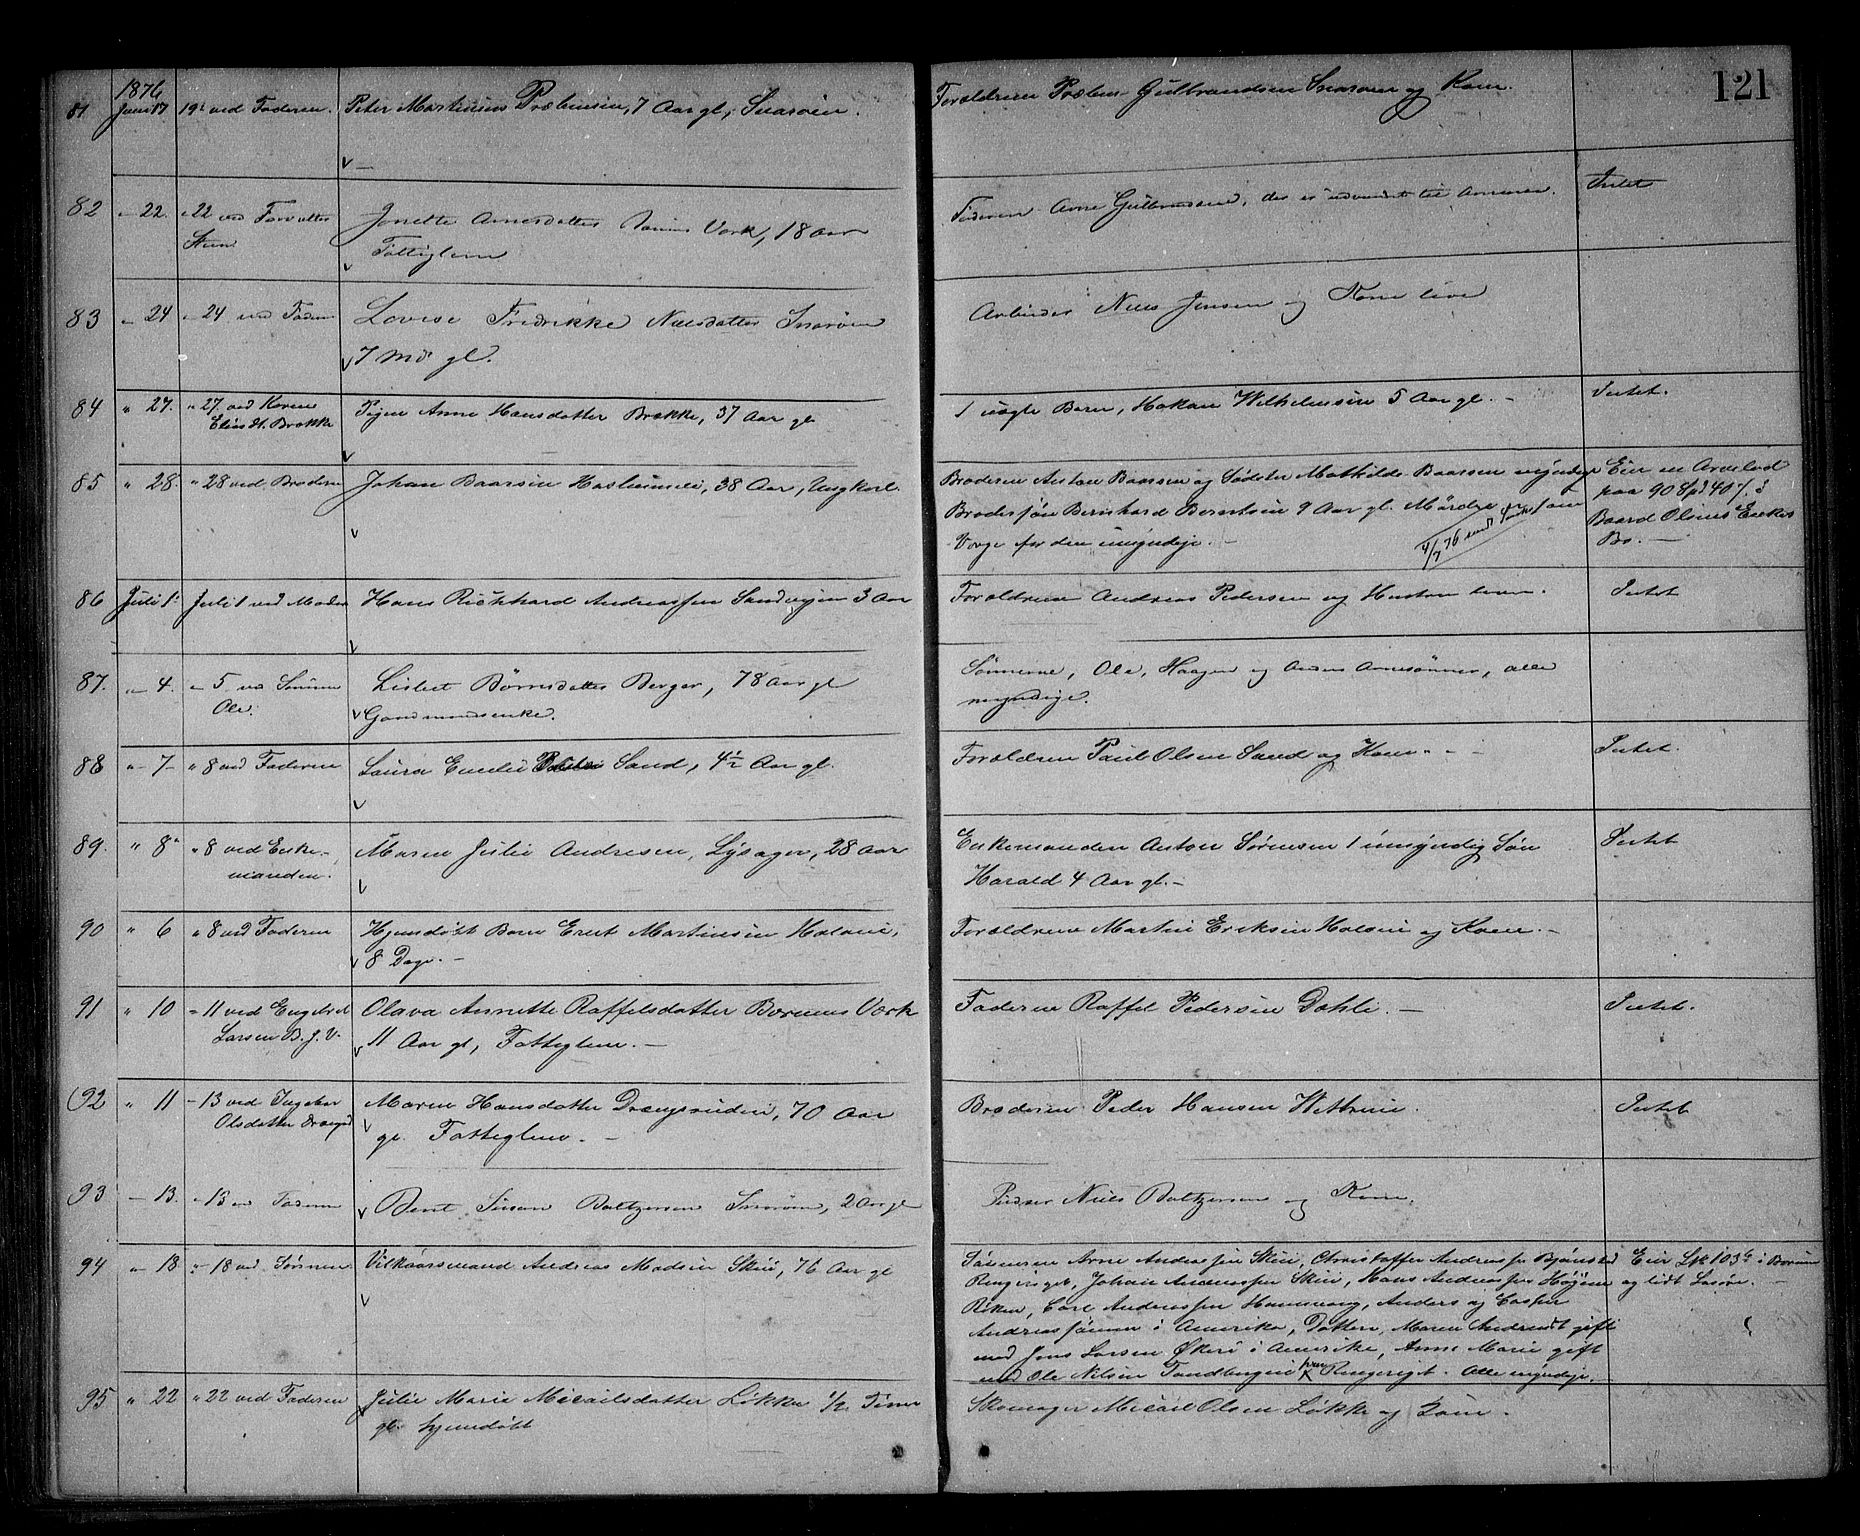 121
1876
81 Juni 17 19de ved Faderen. Peter Martinius Præbensen, 7 Aar gl, Snarøen. Forældrene Præben Gulbrandsen Snarøen og Kone.
82 " 22. " 22 ved Forvalter Jonette Arnesdatter Bærums Værk, 18 Aar Faderen Arne Gulbrandsen, der er udvandret til Amerika. Intet
Steen Fattiglem
83 " 24 " 24 ved Faderen Lovise Fredrikke Nielsdatter Snarøen Arbeider Niels Jensen og Kone lever
7 Md. gl.
84 " 27. " 27 ved Konen Pigen Anne Hansdatter Brække, 37 Aar gl 1 uægte Barn, Hakan Wilhelmsen 5 Aar gl. - Intet.
Elias H. Brække
85 " 28. " 28 ved Broderen Johan Baarsen Haslumseie, 38 Aar, Ungkarl. Broderen Anton Baarsen og Søster Mathilde Baarsen myndige Eier en Arvelod
Brodersøn Bernhard Berntsen 9 Aar gl. Morder paa 90 Spd 40 /. i
Værge for den umyndige. - 4/7 76 Baard Olsens Enkes
Bo. -
86 Juli 1. Juli 1 ved Moder Hans Richhard Andreassen Sandvigen 3 Aar Forældrene Andreas Pedersen og Hustru lever. Intet
87. " 4. " 5 ved Sønnen Lisbet Børresdatter Berger, 78 Aar gl Sønnerne, Ole, Haagen og Anders Arnesønner, alle
Ole. Gaardmandsenke. myndige.
88 " 7 - " 8 ved Faderen Laura Emilie Sand, 4½ Aar gl. Forældrene Paul Olsen Sand og Kone. - - Intet.
89. " 8 " 8 ved Enke- Maren Julie Andresen, Lysager, 28 Aar Enkemanden Anton Sørensen 1 umyndig Søn Intet
manden. Harald 4 Aar gl. -
90 " 6 " 8 ved Faderen Hjemdøbt Barn Ernt Martinsen Holseie, Forældrene Martin Eriksen Holseie og Kone. -
8 Dage. -
91 " 10 " 11 ved Engebret Olava Annette Raffelsdatter Bærums Værk Faderen Raffel Pedersen Dahli. - Intet.
Larsen B. J. V. 11 Aar gl, Fattiglem. -
92 " 11 - 13 ved Ingebor Maren Hansdatter Drængsruden, 70 Aar Broderen Peder Hansen Wettreie. Intet
Olsdatter Drængsrud gl. Fattiglem. -
93 - 13. - 13 ved Faderen Bent Simon Boltzersen Snarøen, 2 Aar gl Pudser Niels Boltzersen og Kone.
94 " 18 " 18 ved Sønnen Vilkaarsmand Andreas Madsen Skui, 76 Aar gl Sønnerne Arne Andreassen Skui, Christoffer Andreassen Bjønstad Eier Spd 103 i Bærum
Ringeriget, Johan Andreassen Skui, Hans Andreassen og lidt Løsøre. -
Røken, Carl Andreassen, Anders og Casper
Andreassønner i Amerika, Datter, Maren Andreasdt gift
med Jens Larsen Økeri i Amerika, Anne Marie gift
med Ole Nilsen Tandbergeie paa Ringeriget. Alle myndige.
95 " 22 " 22 ved Faderen Julie Marie Micailsdatter Løkke ½ Time Skomager Micael Olsen Løkke og Kone.
gl. hjemdøbt